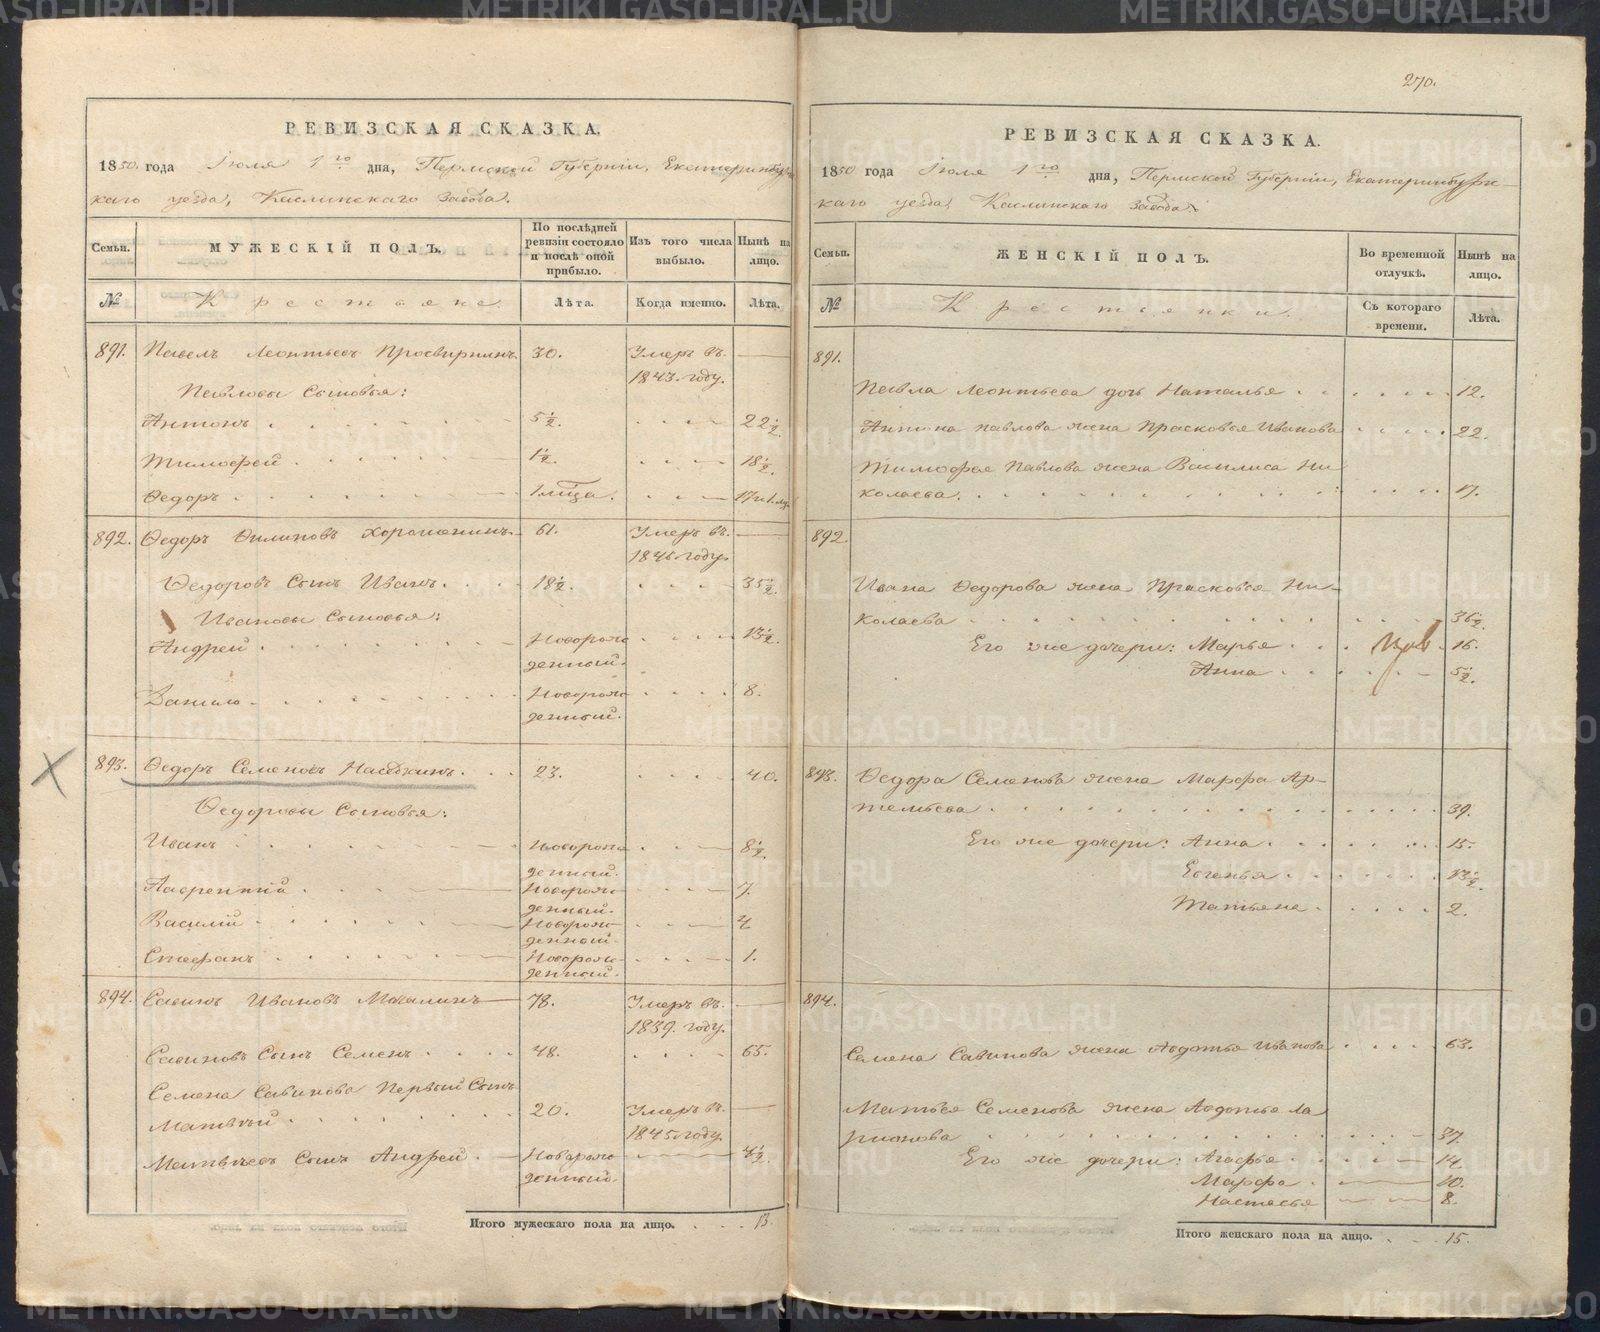 270.
РЕВИЗСКАЯ СКАЗКА.
1850 года Іюля 1го дня, Пермской Губерніи, Екатеринбург-
скаго уезда, Каслинскаго Завода.
Семьи. МУЖЕСКІЙ ПОЛЪ. По послѣдней ревизіи состояло и послѣ оной прибыло. Изъ того числа выбыло. Нынѣ на лицо.
№ Крестьяне Лѣта. Когда именно. Лѣта.
891. Павелъ Леонтьевъ Просвирнинъ 30. Умеръ въ
1843. году.
Павловы Сыновья:
Антонъ 5½. 22½.
Тимофей 1½. 18½.
Ѳедоръ 1 мца. 17 и 1 мц.
892. Ѳедоръ Филиповъ Хорошенинъ 61. Умеръ въ
1846 году.
Ѳедоровъ Сынъ Иванъ 18½. 35½.
Ивановы Сыновья:
Андрей Новорож- 13½.
денный.
Данило Новорож- 8.
денный.
893. Ѳедоръ Семеновъ Насѣдкинъ 23. 40.
Ѳедоровы Сыновья:
Иванъ Новорож- 8½.
денный.
Лаврентій Новорож- 7.
денный.
Василій Новорож- 4
денный.
Стефанъ Новорож- 1.
денный.
894. Савинъ Ивановъ Мочалинъ 78. Умеръ въ
1839. году.
Савиновъ Сынъ Семенъ 48. 65.
Семена Савинова Первый Сынъ
Матвѣй 20. Умеръ въ
1845 году.
Матвѣевъ Сынъ Андрей Новорож- 4½.
денный.
Итого мужескаго пола на лицо. 13.
РЕВИЗСКАЯ СКАЗКА.
1850 года Іюля 1го дня, Пермской Губерніи, Екатеринбургс-
каго уезда, Каслинскаго Завода.
Семьи. ЖЕНСКІЙ ПОЛЪ. Во временной отлучкѣ. Нынѣ на лицо.
№ Крестьянки. Съ котораго времени. Лѣта.
891.
Павла Леонтьева дочь Наталья 12.
Антона Павлова жена Прасковья Иванова 22.
Тимофея Павлова жена Василиса Ни-
колаева. 17.
892.
Ивана Ѳедорова жена Прасковья Ни-
колаева 36½.
Его же дочери: Марья 16.
Анна 5½.
893. Ѳедора Семенова жена Марфа Ар-
темьева 39.
Его же дочери: Анна 15.
Евгенья 13½.
Татьяна 2.
894.
Семена Савинова жена Авдотья Иванова 63.
Матвея Семенова жена Авдотья Ла-
рионова 37.
Его же дочери: Агафья 14.
Марфа 10.
Настасья 8.
Итого женскаго пола на лицо. 15.
METRIKI.GASO-URAL.RU